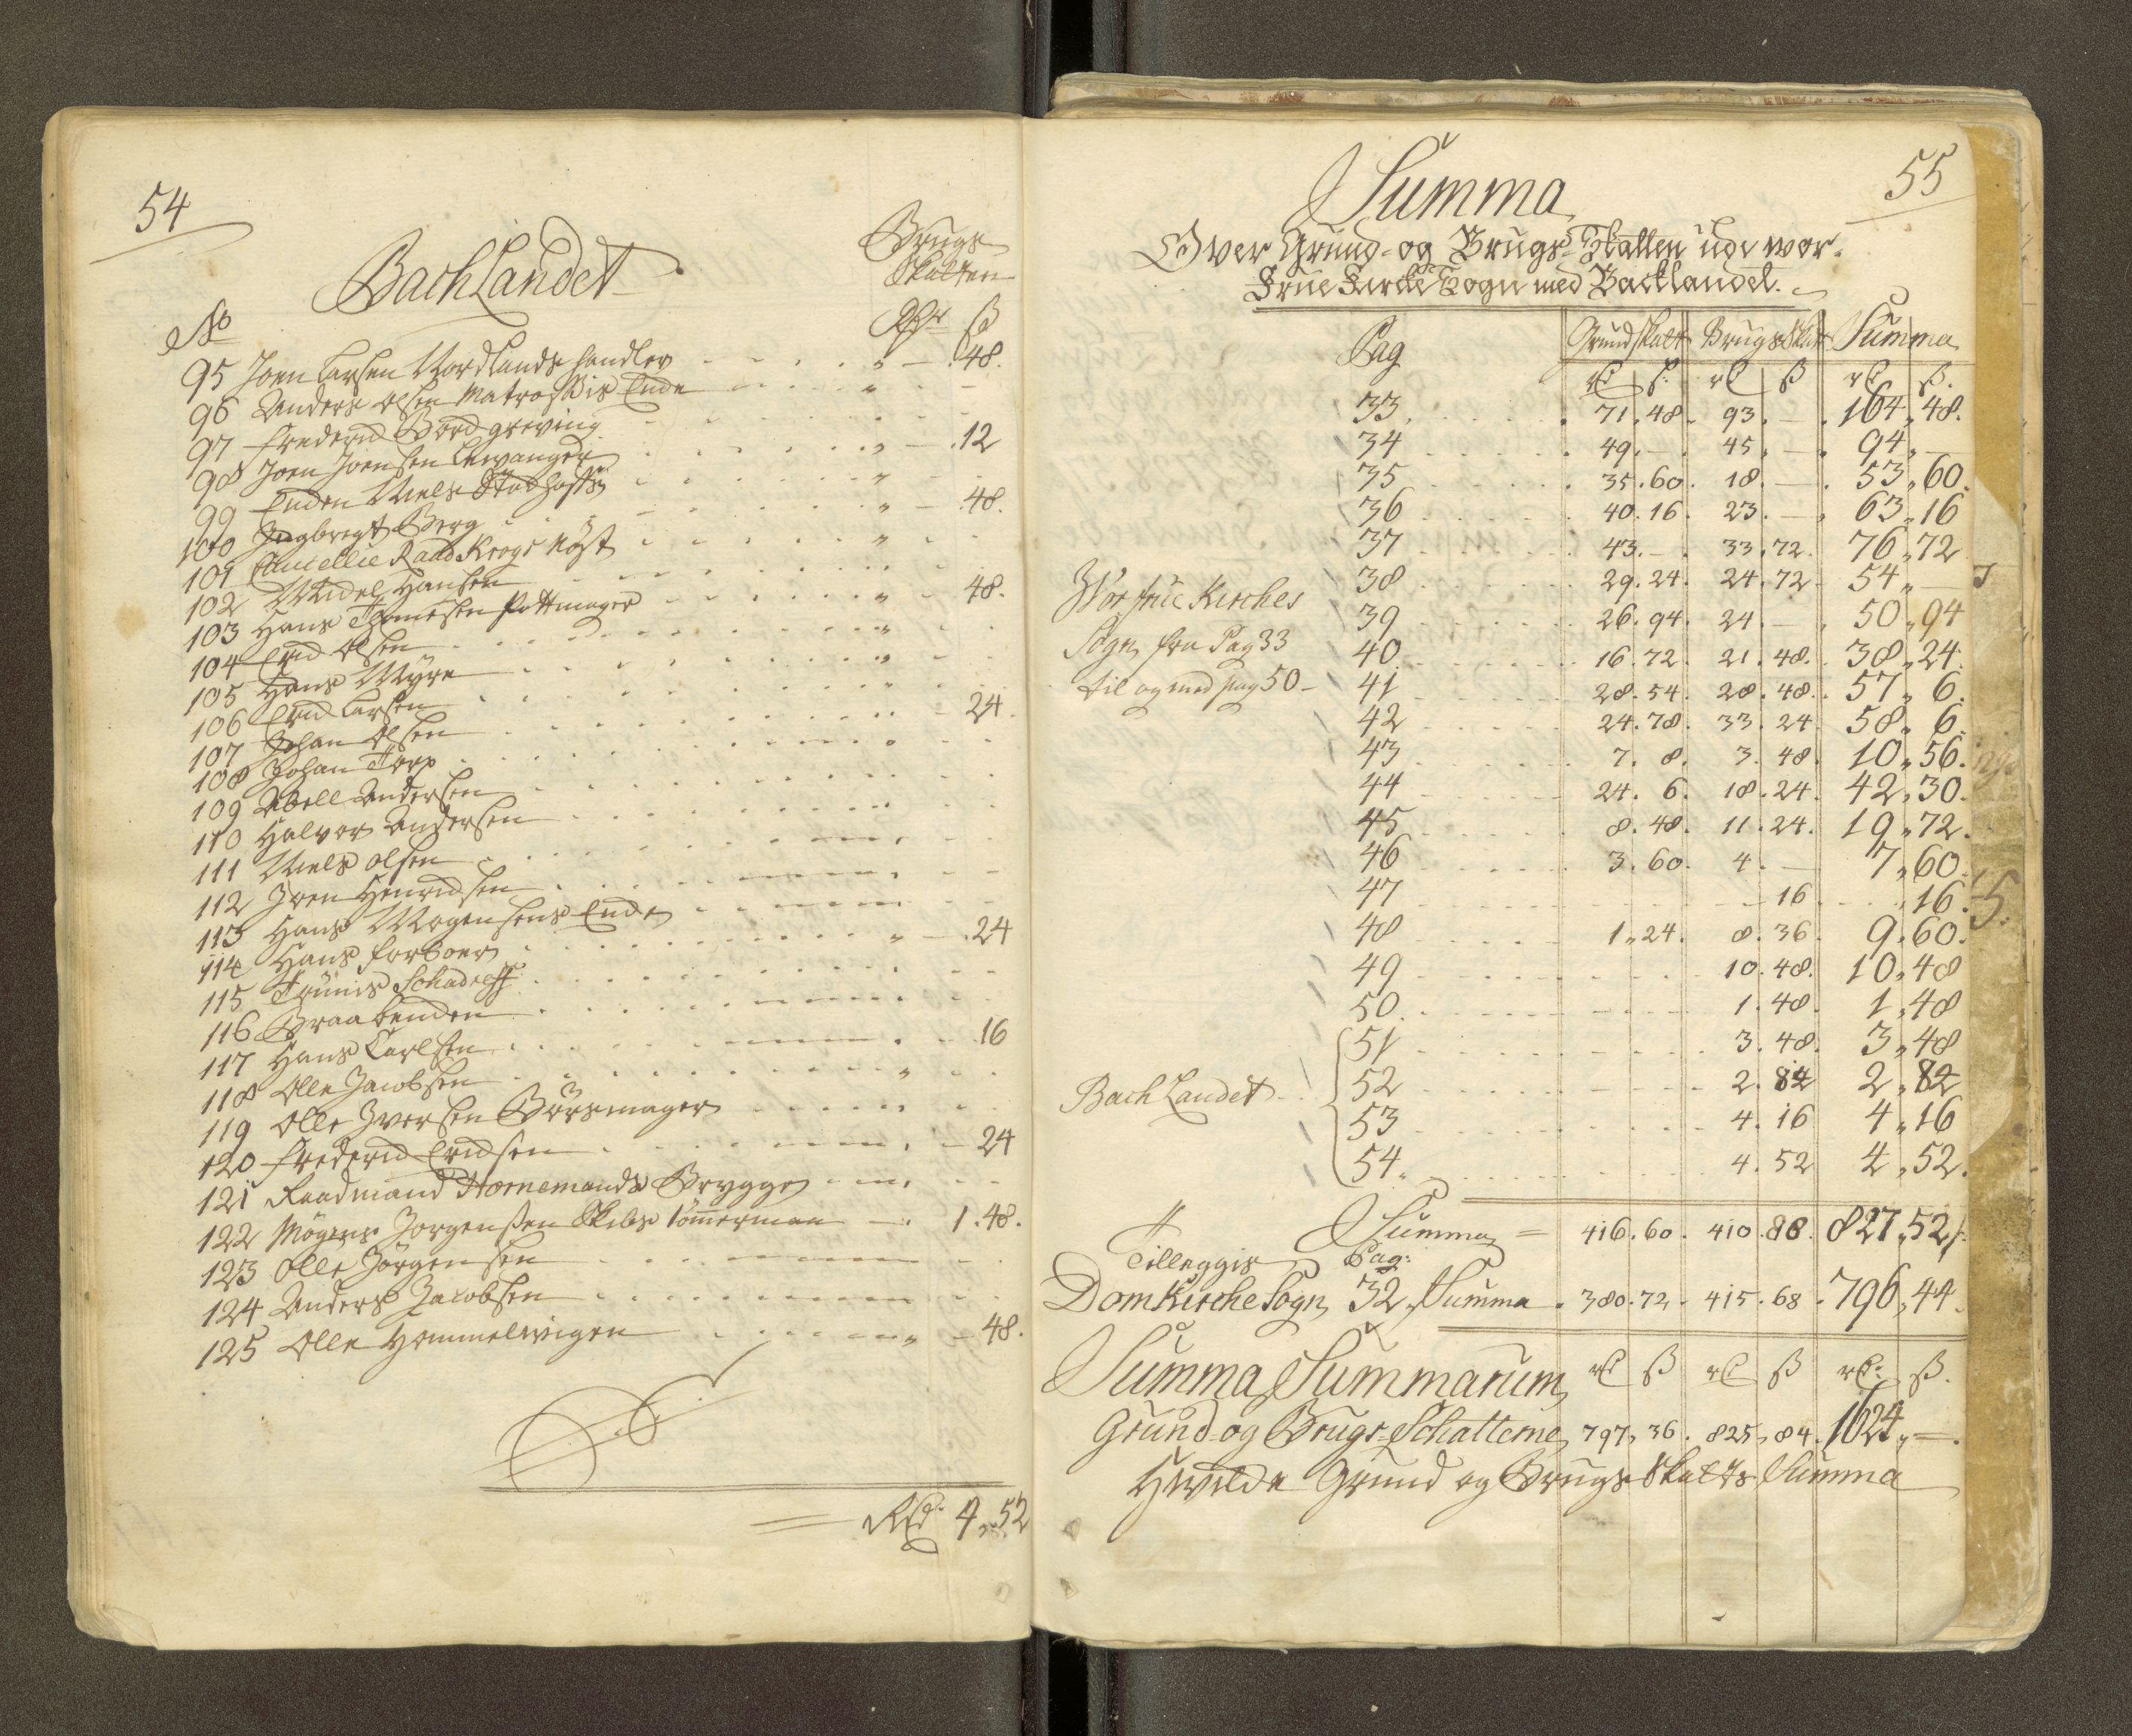 54
BachLandet
Brugs
Skatten
No
Rdr ß
95 Joen Larsen Nordlands handler „ — 48.
96 Anders Olsen Matros Dis Enke „
97 Frederid Bord greving
98 Joen Joensen Lewanger „ — 12
99 Enken Niels Stadhoffs „
100 Ingbregt Berg „ — 48.
101 Cancellie Raad Krogs Nøst „
102 Mickel Hansen
103 Hans Thomesen Pottmager „ — 48.
104 Erich Olsen „
105 Hans Myre „
106 Erich Larsen
107 Johan Olsen „ — 24.
108 Johan Torp
109 Abell Andersen
110 Halvor Andersen
111 Niels Olsen
112 Joen Henrichsen
113 Hans Mogensens Enke
114 Hans Forboer „ — 24
115 Tønnis Schadeff
116 Braabenden
117 Hans Carlsen — 16
118 Olle Jacobsen „
119 Olle Iversen Børsmager
120 Frederich Erichsen — 24
121 Raadmand Hornemands Brygge
122 Mogens Jørgensen Skibs Tømmerman — 1.48.
123 Olle Jørgensen
124 Anders Jacobsen
125 Olle Hommelvigen „ — 48.
= Rd. 4„52
55
Summa
Over Grund- og Brugs-Skatten udi vor-
Frue Kircke Sogn med Backlandet.
Pag Grundskatt Brugsskat Summa
rd ß rd ß rd ß.
33 71.48. 93.— 164„48.
34 49.— 45.— 94„—
35 35.60. 18.— 53„60.
36 40.16. 23.— 63„16
37 43.— 33.72. 76„72
38 29.24. 24.72. 54„—
Vor frue Kirches
39 26.94. 24.— 50„94
Sogn, fra Pag 33
40 16.72. 21.48. 38„24.
til og med pag 50 –
41 28.54. 28.48. 57„6.
42 24.78. 33.24 58„6.
43 7.8. 3.48. 10„56.
44 24.6. 18.24. 42„30.
45 8.48. 11.24. 19„72.
46 3.60. 4.— 7„60.
47 — 16 . 16.
48 1„24. 8.36. 9„60.
49 10.48. 10„48
50 1.48. 1„48
51 3.48. 3„48
BachLandet
52 2.82 2„82
53 4.16 4„16
54 4.52 4„52.
Summa = 416.60. 410.88. 827„52
Tilleggis Pag:
DomKircke Sogn, 32 Summa 380.72. 415.68. 796„44.
Summa Summarum rd ß rd ß rd: ß.
Grund- og Brugs-Schatterne 797„36. 825„84. 1624„—.
Hvilde Grund og Brugs Skatts Summa